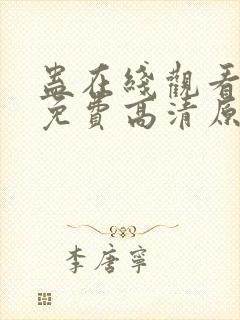 蛊在綫觀看
免費高清原
李唐寧